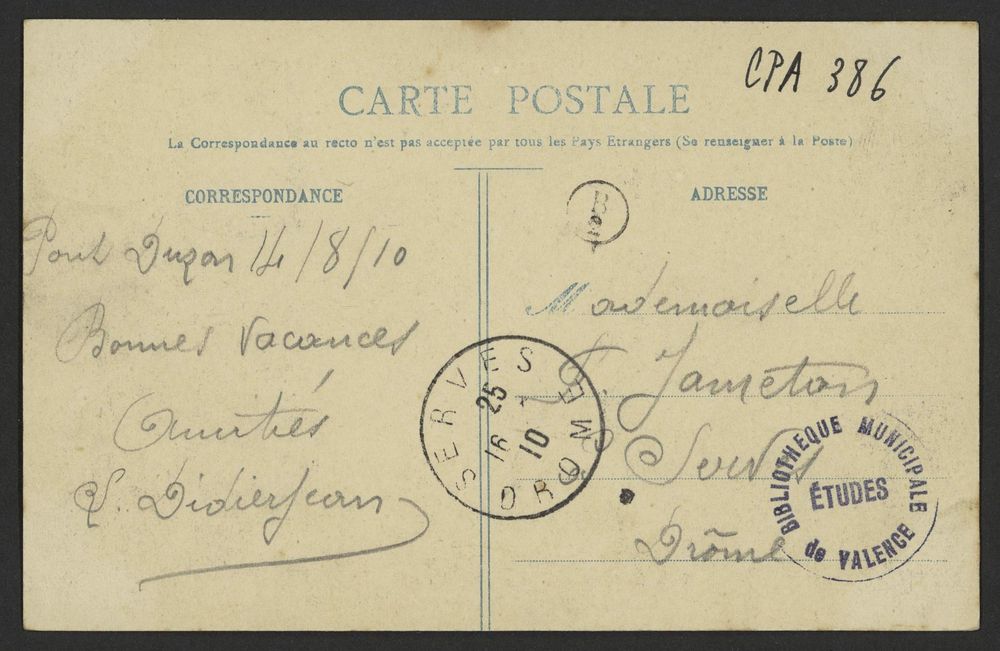 CPA 386
CARTE POSTALE
La Correspondance au recto n'est pas acceptée par tous les Pays Etrangers (Se renseigner à la Poste)
CORRESPONDANCE
Pont Duzon 14/8/10
Bonnes Vacances
Amitiés
Didierjean
ADRESSE
B
Mademoiselle
Jameton
Serves
Drôme
SERVES
25
16
10
DROME
BIBLIOTHEQUE MUNICIPALE
ÉTUDES
de VALENCE